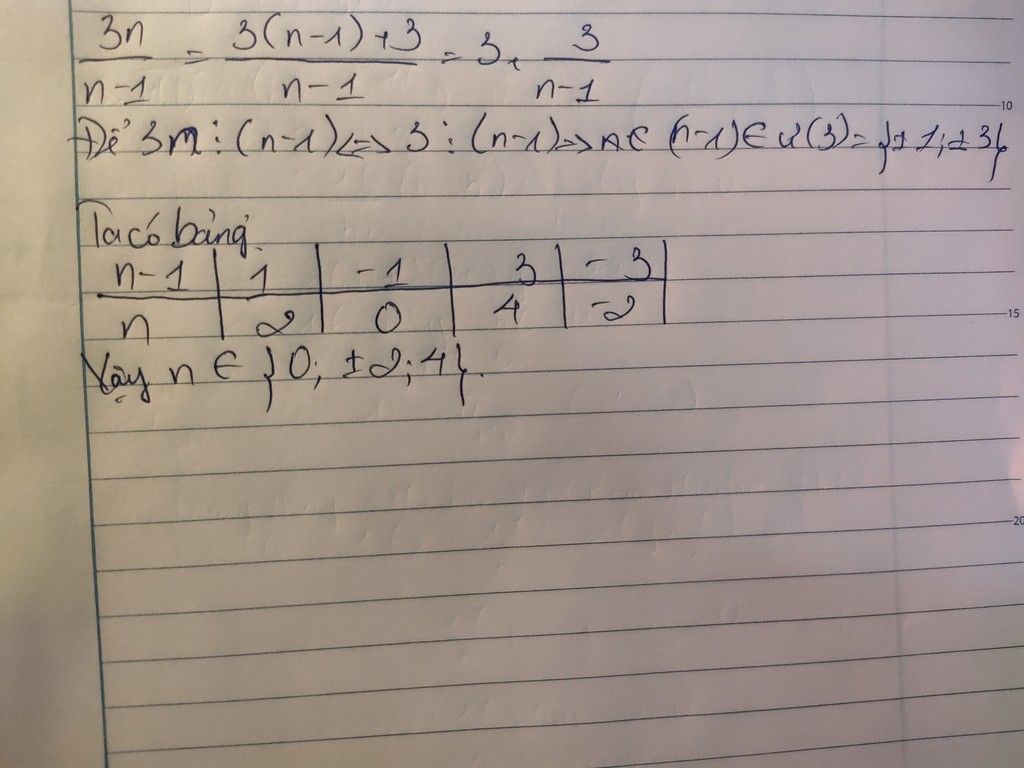 3n/(n-1) = (3(n-1)+3)/(n-1) = 3+ 3/(n-1)
10
Để 3n ⋮ (n-1) <=> 3 ⋮ (n-1) => (n-1) ∈ Ư(3) = {±1; ±3}
Ta có bảng.
n-1 | 1 | -1 | 3 | -3
n | 2 | 0 | 4 | -2
15
Vậy n ∈ {0; ±2; 4}.
20